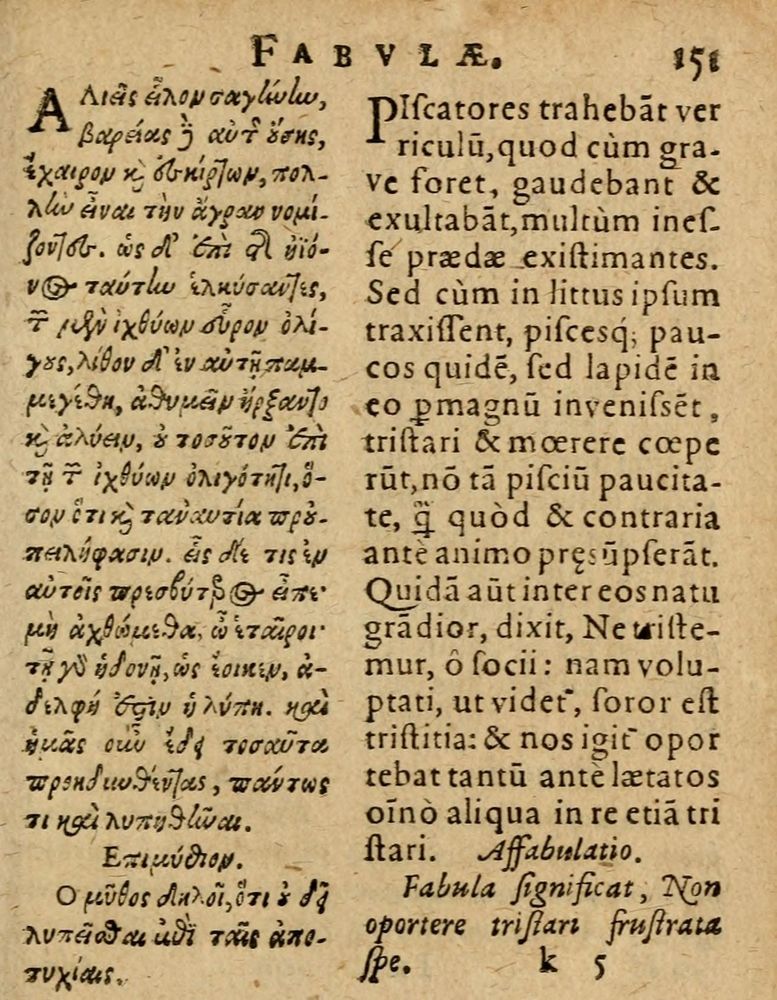 FABVLÆ. 151
ΑΛιεῖς εἷλκον σαγήνην,
βαρείας δὲ αὐτῆς οὔσης,
ἔχαιρον καὶ ἐσκίρτων, πολ-
λὴν εἶναι τὴν ἄγραν νομί-
ζοντες. ὡς δ' ἐπὶ τῆς ἠϊό-
νος ταύτην ἑλκύσαντες,
τῶν μὲν ἰχθύων εὗρον ὀλί-
γους, λίθον δ' ἐν αὐτῇ παμ-
μεγέθη, ἀθυμεῖν ἤρξαντο
καὶ ἀλύειν, οὐ τοσοῦτον ἐπὶ
τῇ τῶν ἰχθύων ὀλιγότητι, ὅ-
σον ὅτι καὶ τἀναντία προὐ-
πειλήφασιν. εἷς δέ τις ἐν
αὐτοῖς πρεσβύτερος εἶπε·
μὴ ἀχθώμεθα, ὦ ἑταῖροι·
τῇ γὰρ ἡδονῇ, ὡς ἔοικεν, ἀ-
δελφή ἐστιν ἡ λύπη. καὶ
ἡμᾶς οὖν ἔδει τοσαῦτα
προηδυνθέντας, πάντως
τι καὶ λυπηθῆναι.
Επιμύθιον.
Ο μῦθος δηλοῖ, ὅτι οὐ δεῖ
λυπεῖσθαι ἐπὶ ταῖς ἀπο-
τυχίαις.
PIſcatores trahebāt ver
riculū, quod cùm gra-
ve foret, gaudebant &
exultabāt, multùm ineſ-
ſe prædæ exiſtimantes.
Sed cùm in littus ipſum
traxiſſent, piſcesq́; pau-
cos quidē, ſed lapidē in
eo ꝑmagnū inveniſsēt,
triſtari & mœrere cœpe
rūt, nō tā piſciū paucita-
te, q̃ quòd & contraria
antè animo pręsūpſerāt.
Quidā aūt inter eos natu
grādior, dixit, Ne triſte-
mur, ô ſocii: nam volu-
ptati, ut videt᷑, ſoror eſt
triſtitia: & nos igit᷑ opor
tebat tantū antè lætatos
oīnò aliqua in re etiā tri
ſtari. Affabulatio.
Fabula ſignificat, Non
oportere triſtari fruſtrata
ſpe. k 5